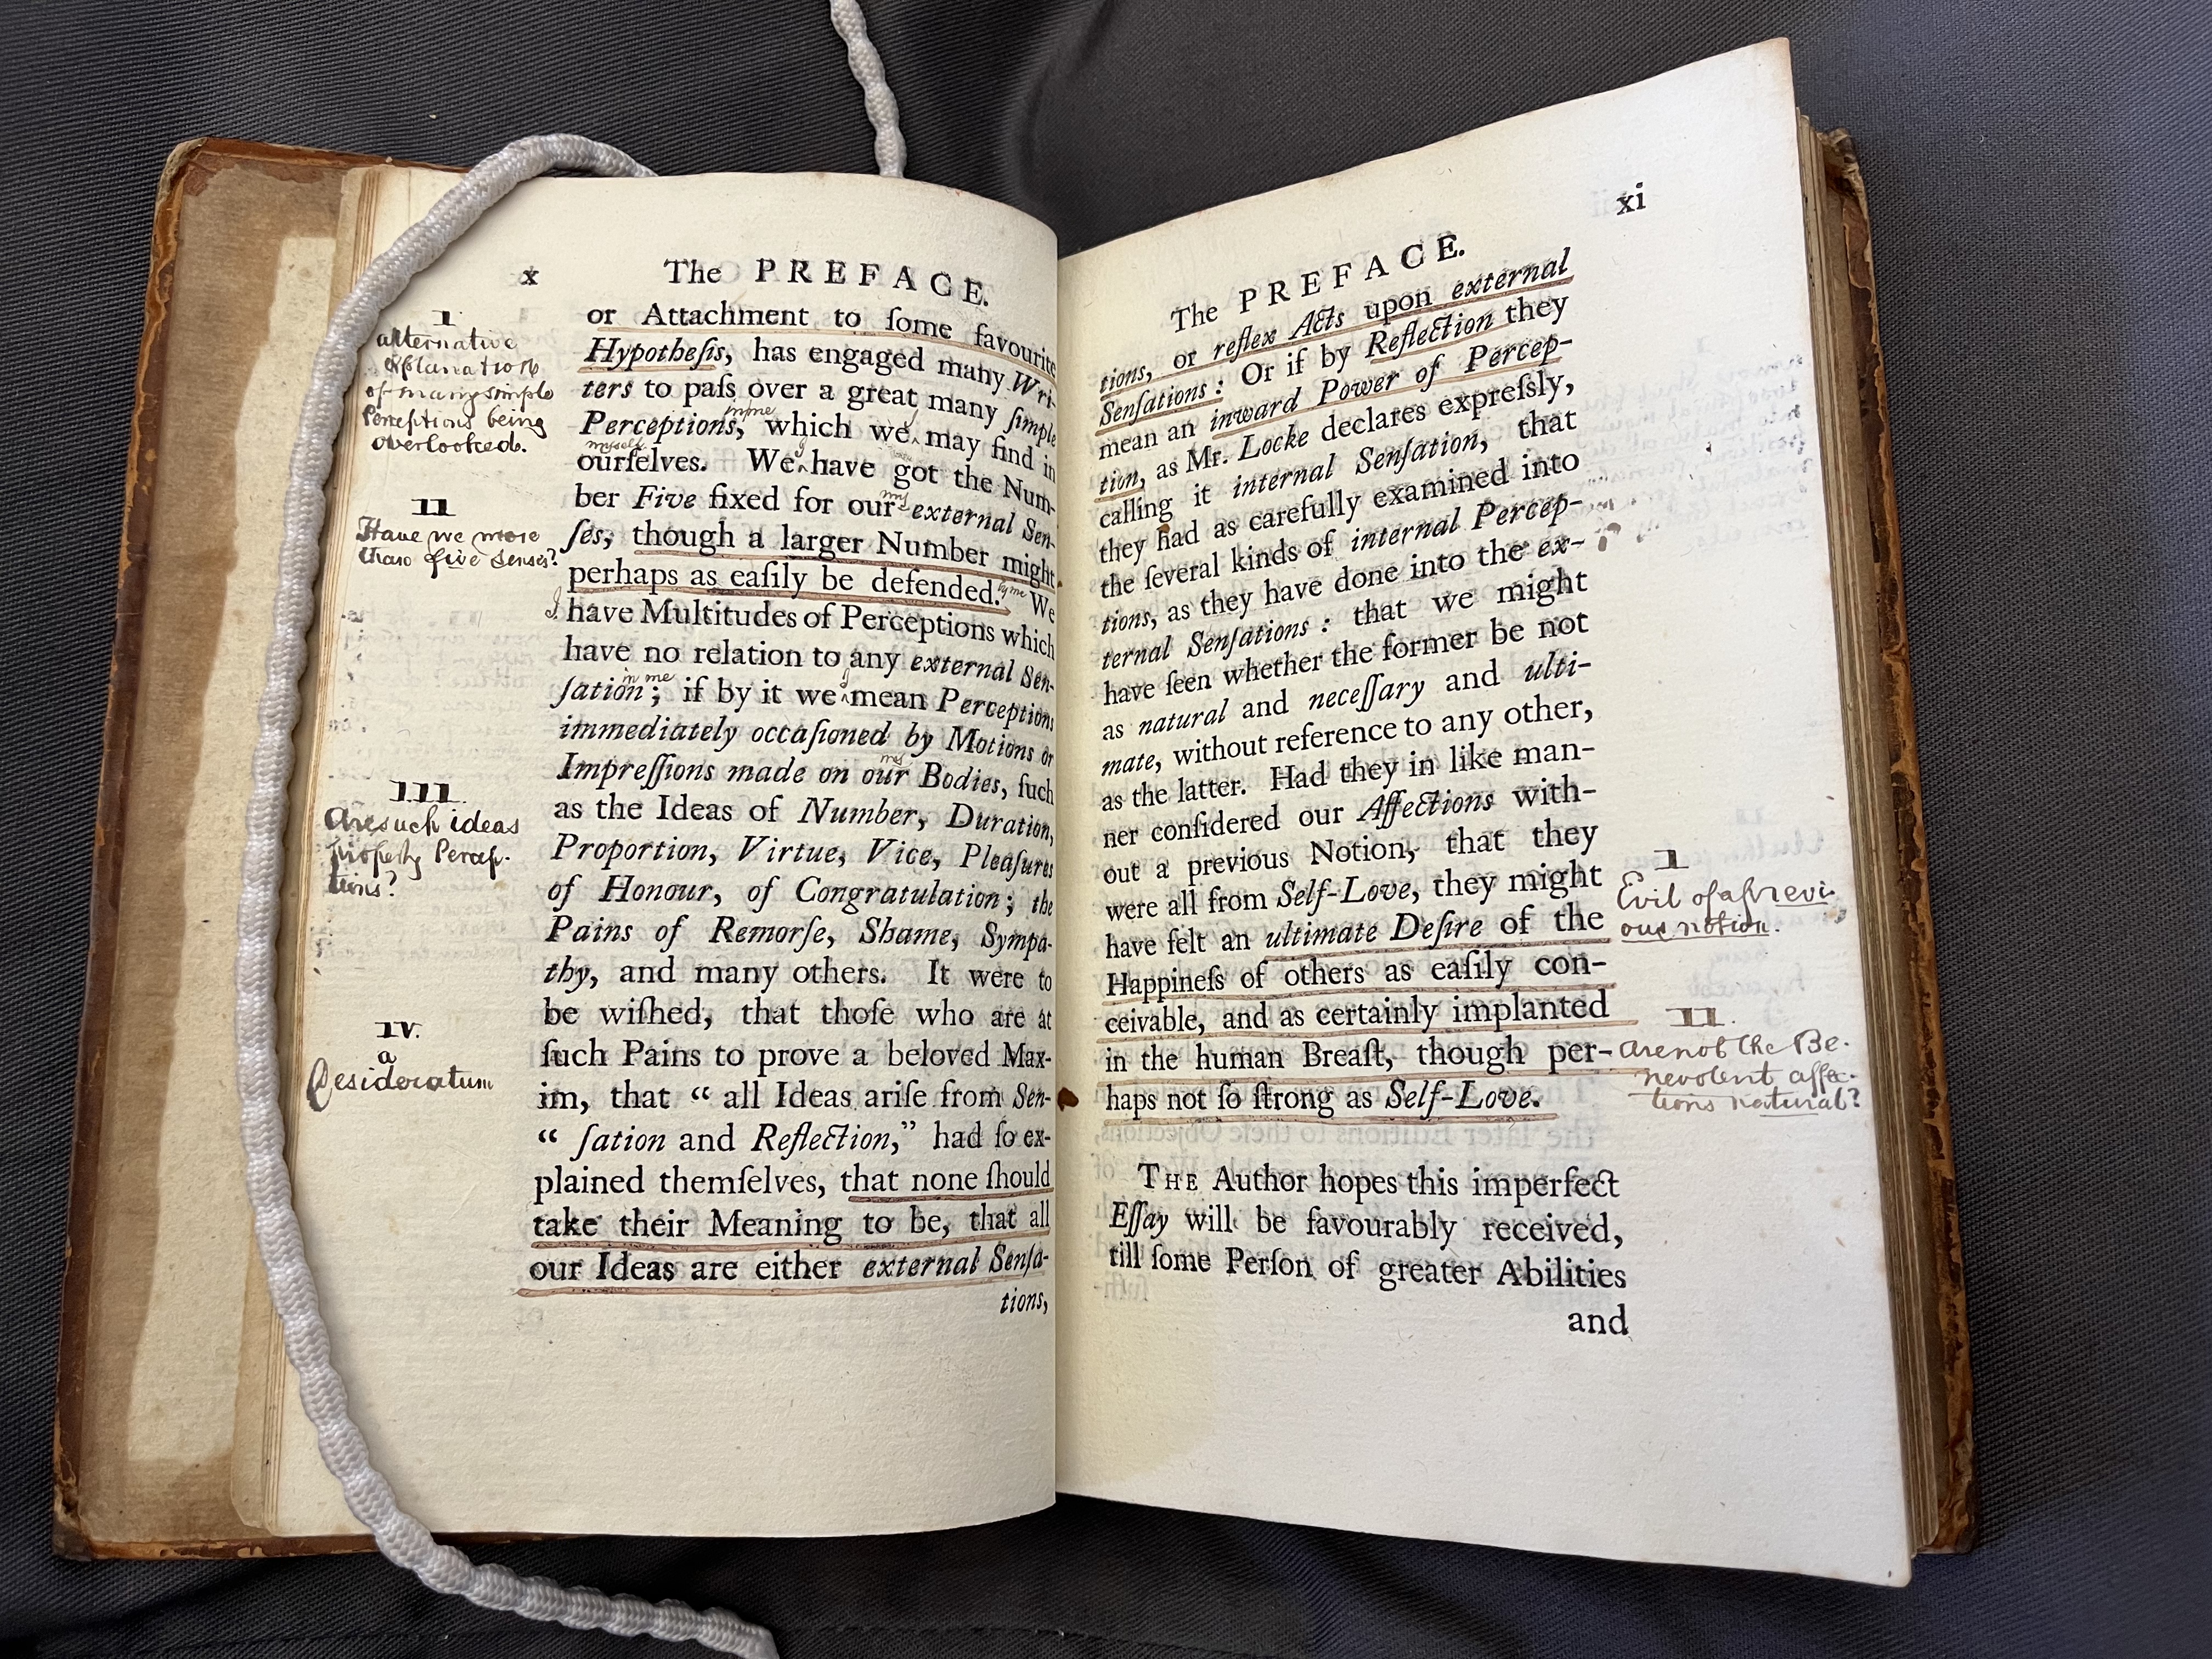 x The PREFACE.
or Attachment to ſome favourite
Hypotheſis, has engaged many Wri-
ters to paſs over a great many ſimple
in me
Perceptions, which we may find in
myself
ourſelves. We have got the Num-
I
my
ber Five fixed for our external Sen-
ſes, though a larger Number might
perhaps as eaſily be defended. We
by me
I have Multitudes of Perceptions which
have no relation to any external Sen-
in me I
ſation; if by it we mean Perceptions
immediately occaſioned by Motions or
Impreſſions made on our Bodies, ſuch
as the Ideas of Number, Duration,
Proportion, Virtue, Vice, Pleaſures
of Honour, of Congratulation; the
Pains of Remorſe, Shame, Sympa-
thy, and many others. It were to
be wiſhed, that thoſe who are at
ſuch Pains to prove a beloved Max-
im, that “ all Ideas ariſe from Sen-
“ ſation and Reflection,” had ſo ex-
plained themſelves, that none ſhould
take their Meaning to be, that all
our Ideas are either external Senſa-
tions,
I
alternative
explanation
of many simple
Perceptions being
overlooked.
II
Have we more
than five senses?
III.
Are such ideas
properly Percep-
tions?
IV.
a
Desideratum
xi
The PREFACE.
tions, or reflex Acts upon external
Senſations: Or if by Reflection they
mean an inward Power of Percep-
tion, as Mr. Locke declares expreſsly,
calling it internal Senſation, that
they had as carefully examined into
the ſeveral kinds of internal Percep-
tions, as they have done into the ex-
ternal Senſations: that we might
have ſeen whether the former be not
as natural and neceſſary and ulti-
mate, without reference to any other,
as the latter. Had they in like man-
ner conſidered our Affections with-
out a previous Notion, that they
were all from Self-Love, they might
have felt an ultimate Deſire of the
Happineſs of others as eaſily con-
ceivable, and as certainly implanted
in the human Breaſt, though per-
haps not ſo ſtrong as Self-Love.
THE Author hopes this imperfect
Eſſay will be favourably received,
till ſome Perſon of greater Abilities
and
I
Evil of a previ-
ous notion.
II.
Are not the Be-
nevolent affec-
tions natural?